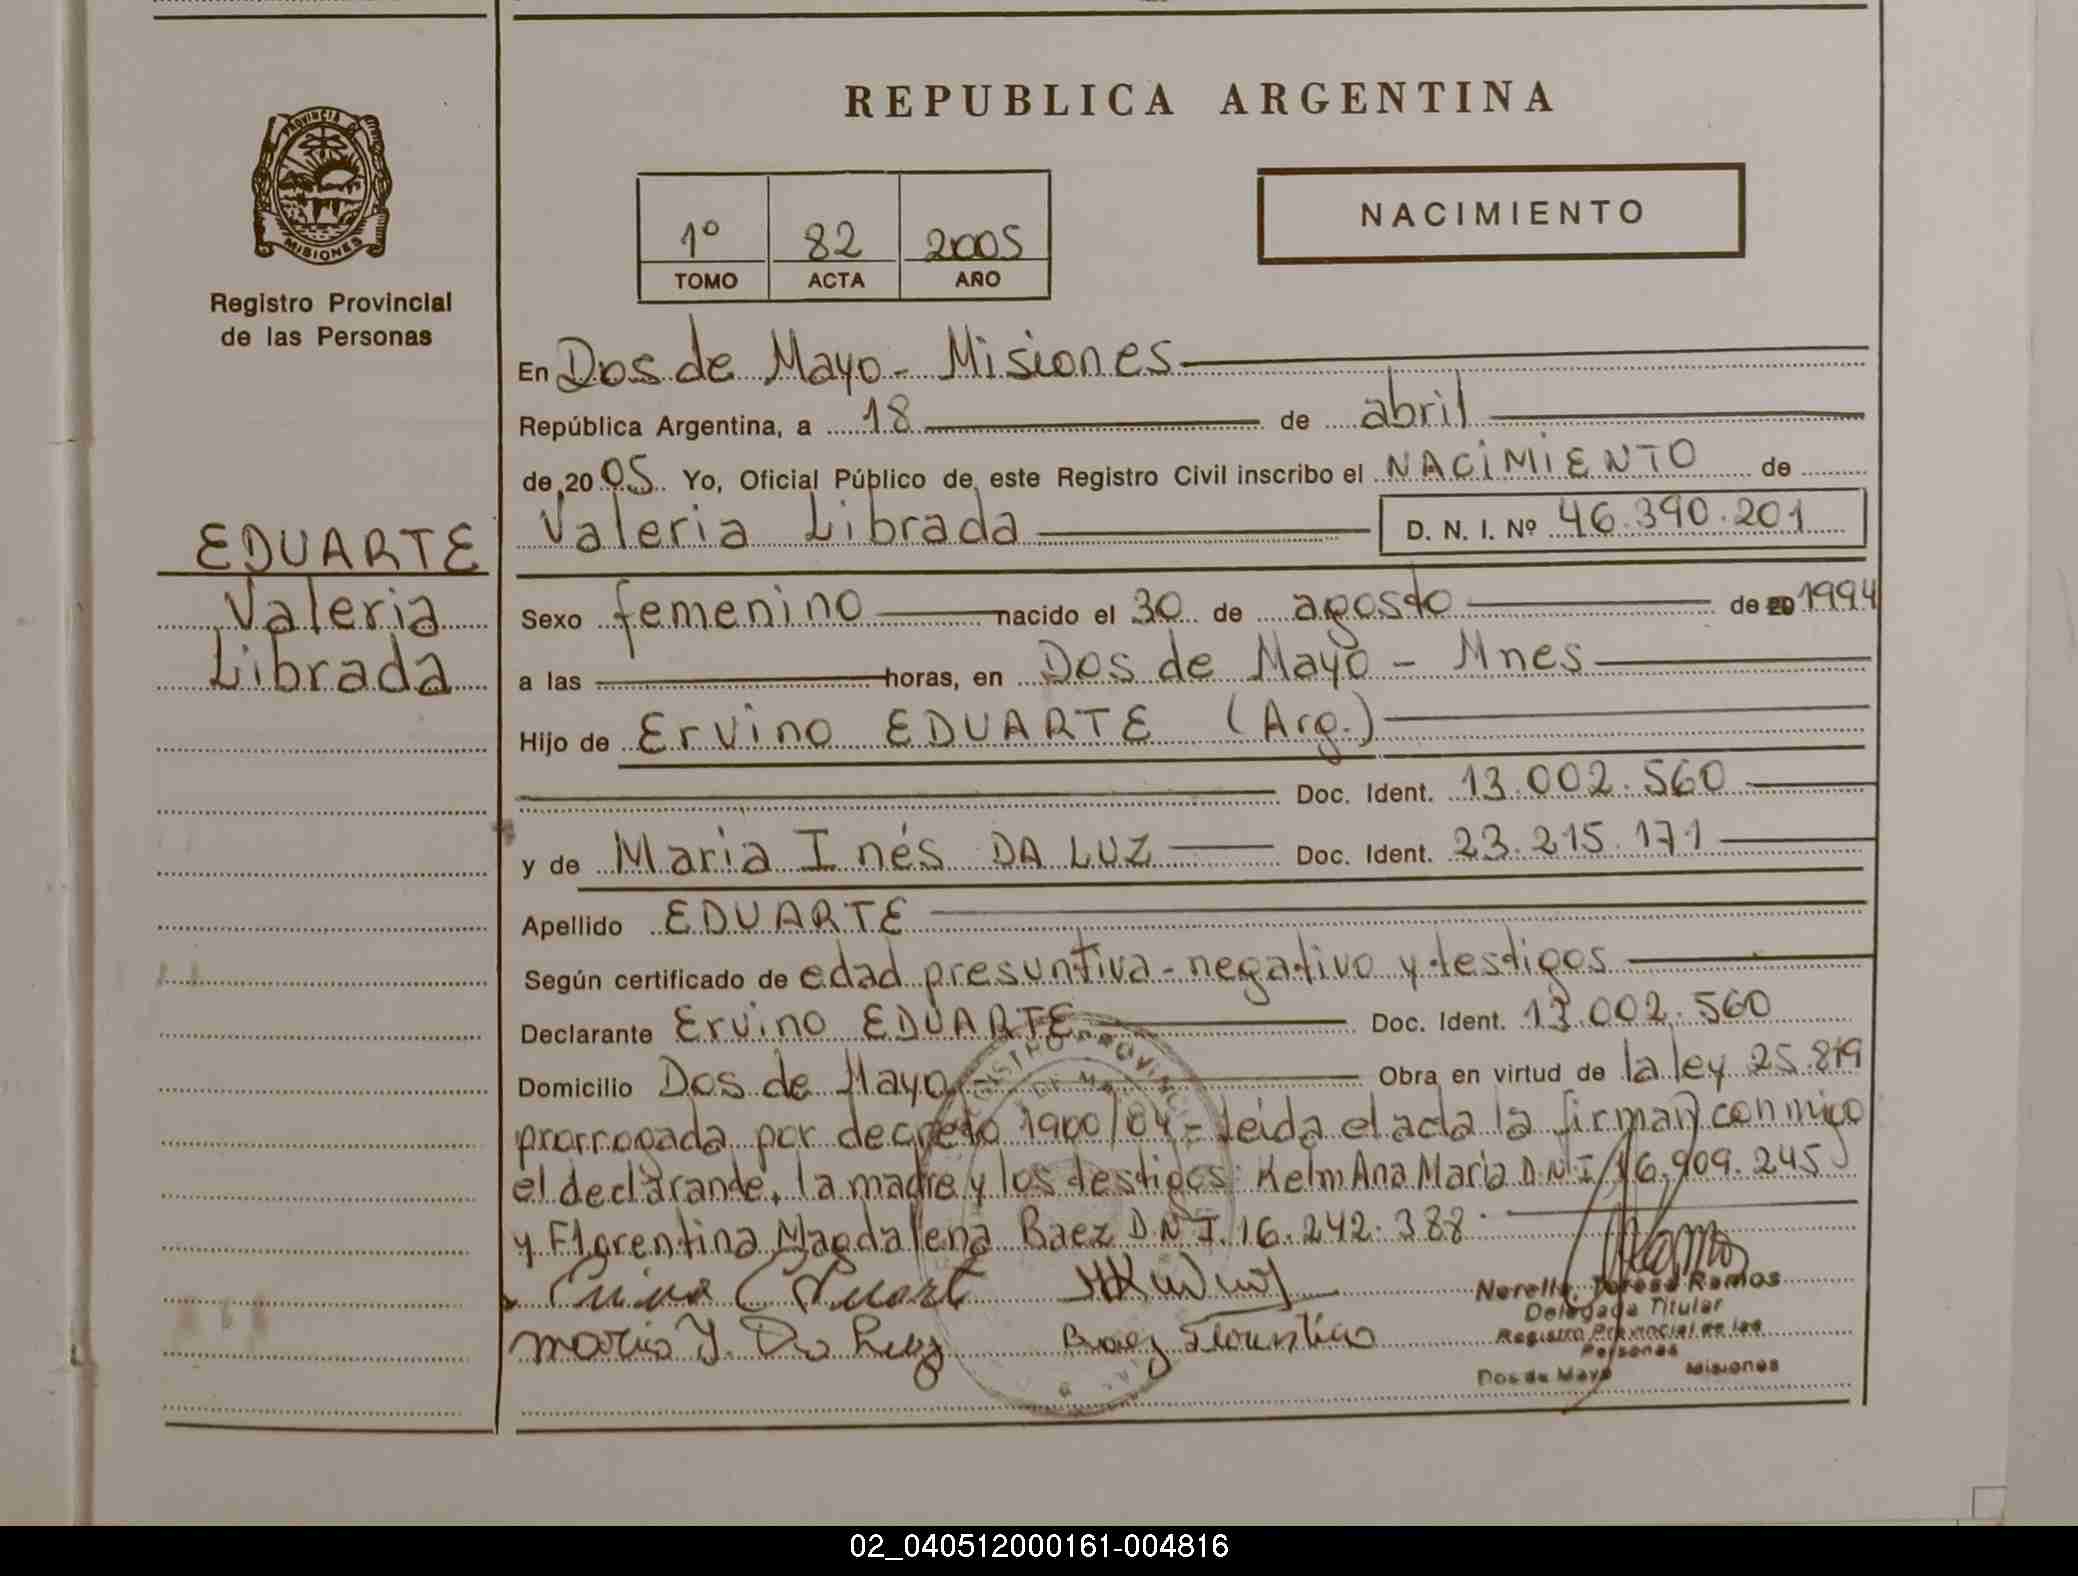 REPUBLICA ARGENTINA
PROVINCIA DE
MISIONES
Registro Provincial
de las Personas
1º 82 2005
TOMO ACTA AÑO
NACIMIENTO
EDUARTE
Valeria
Librada
En Dos de Mayo - Misiones
República Argentina, a 18 de abril
de 20 05 Yo, Oficial Público de este Registro Civil inscribo el NACIMIENTO de
Valeria Librada D. N. I. Nº 46.390.201
Sexo femenino nacido el 30 de agosto de 20 1994
a las horas, en Dos de Mayo - Mnes
Hijo de Ervino EDUARTE (Arg.)
Doc. Ident. 13.002.560
y de Maria Inés DA LUZ Doc. Ident. 23.215.171
Apellido EDUARTE
Según certificado de edad presuntiva - negativo y testigos
Declarante Ervino EDUARTE Doc. Ident. 13.002.560
Domicilio Dos de Mayo Obra en virtud de la ley 25.819
prorrogada por decreto 1900/04 - leida el acta la firman conmigo
el declarante, la madre y los testigos: Kelm Ana Maria D.N.I 16.909.245
y Florentina Magdalena Baez D.N.I. 16.242.388
Maria I. Da Luz Baez Florentina
Norella Teresa Ramos
Delegada Titular
Registro Provincial de las
Personas
Dos de Mayo Misiones
02_040512000161-004816